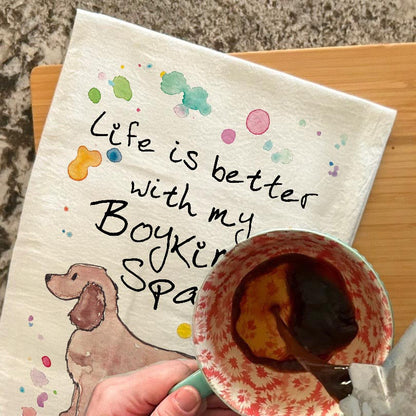 Life is better
with my
Boykin
Spa